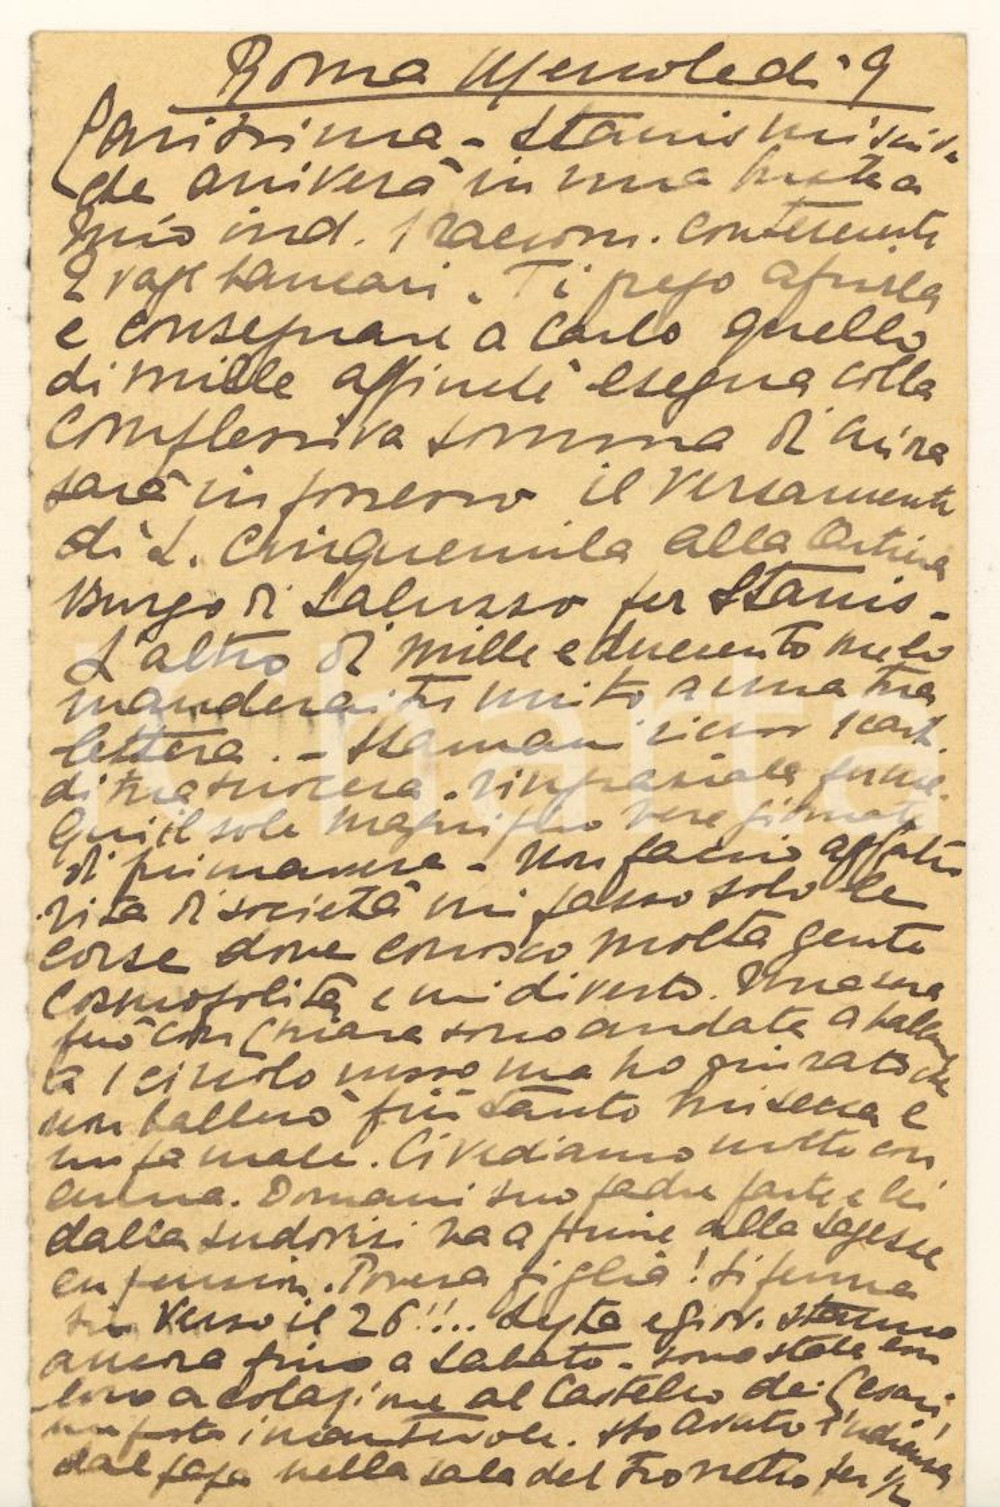 Roma Mercoledì 9
Carissima - Stanis mi scrive
che arriverà in una busta a
mio ind. 1 raccom. contenente
2 vagl. bancari. Ti prego aprirla
e consegnare a Carlo quello
di mille affinché esegua colla
complessiva somma di cui ora
sarà in possesso il versamento
di L. Cinquemila alla
Burgo di Saluzzo per Stanis -
L'altro di mille e duecento me lo
manderai unito a una tua
lettera. - Stamani 1 cart.
di tua suocera. ringraziala
Qui il sole magnifico vere giornate
di primavera - Non faccio affatto
vita di società mi passo solo le
corse dove conosco molta gente
cosmopolita e mi diverto. Una sera
però con Chiara sono andata a ballare
a 1 circolo russo ma ho giurato che
non ballerò più tanto mi secca e
mi fa male. Ci vediamo molto con
Domani suo padre parte e lei
dalla Ludovisi va a finire alla Sagesse
en pension. Povera figlia! Si ferma
sin verso il 26!!.. Lyta e Giov. staranno
ancora fino a Sabato - sono stata con
loro a colazione al Castello dei Cesari,
un posto incantevole. Ho avuto l'udienza
dal papa nella sala del Tronetto per 1/2